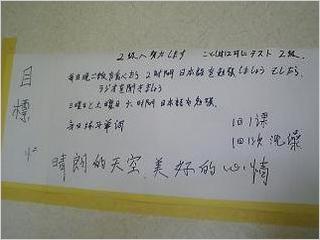 目標
2級へ努力します ことし12月にテスト 2級
毎日晩ご飯を食べたら 2時間 日本語を勉強しましょう そしたら
ラジオを聞きましょう
三曜日と土曜日 六時間 日本語を勉強
1日1課
1日1次洗澡
晴朗的天空、美好的心情